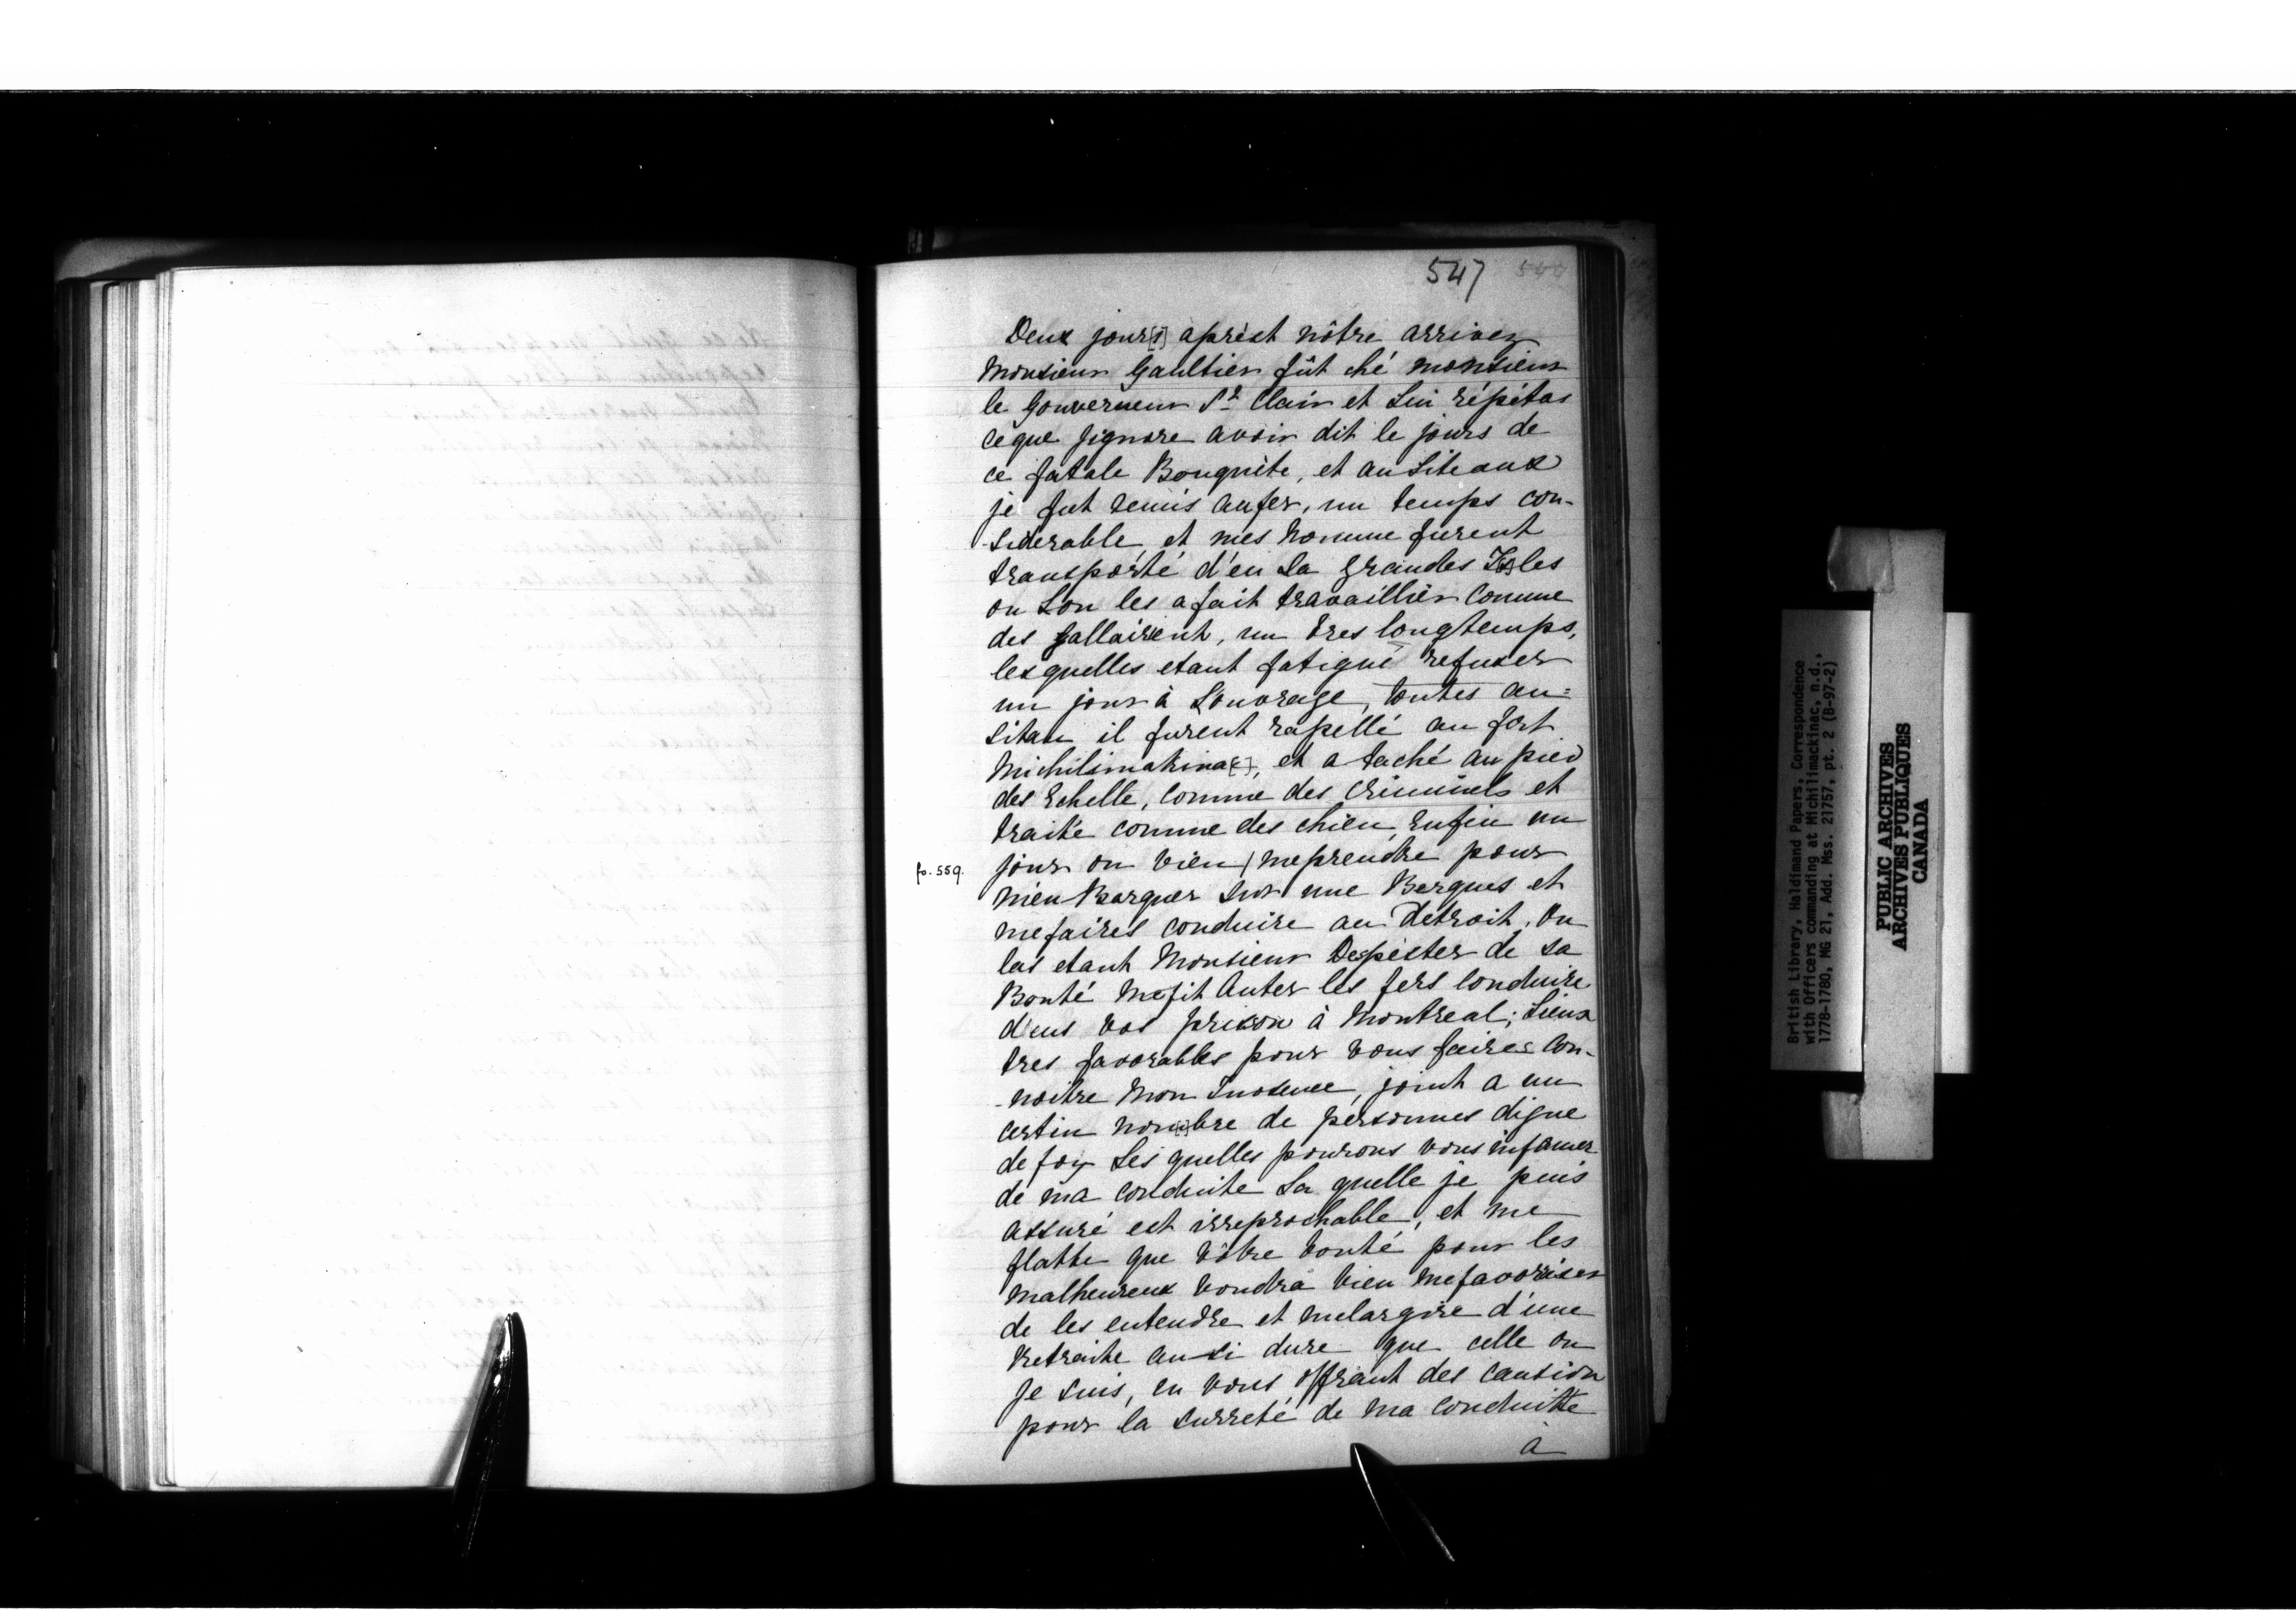 547
Deux jour[s] aprèst nôtre arrivez
Monsieur Gaultier fût ché monsieur
le Gouverneur St Clair et Lui répétas
ce que Jignore avoir dit le jours de
ce fatale Bouquite, et au Siteaux
je fut remis aufer, un temps con-
-siderable, et mes homme furent
transporté d'en La grandes I[s]les
ou Lon les a fait travaillier comme
des gallairent, un tres longtemps,
lesquelles etant fatigué refuser
un jour à Louvrage, toutes au=
sitau il furent rapellé au fort
Michilimakina[c], et a taché au pied
des Echelle, comme des criminels et
traité comme des chien, Enfin un
fo. 559.
jour on vien / me prendre pour
m'en Barquer sur une Berques et
mefaires conduire au Detroit, Ou
las etant Monsieur Depéster de sa
Bonté Mefit Auter les fers Conduire
d'ens vos prison à Montreal; Lieux
tres favorables pour vous faires Con-
-noitre Mon Inosence, joint a un
certin nom[b]re de personnes digne
de foy Les quelles pourons vous infamer
de ma conduite La quelle je puis
assuré est irreprochable, et me
flatte que Vôtre bonté pour les
malheureux voudra bien mefavoriser
de les entendre et melargire d'une
Retraite au si dure que celle ou
Je suis, en vous offrant des caution
pour la surreté de Ma Conduitte
à
British Library, Haldimand Papers, Correspondence
with Officers commanding at Michilimackinac, n.d.,
1778-1780, MG 21, Add. Mss. 21757, pt. 2 (B-97-2)
PUBLIC ARCHIVES
ARCHIVES PUBLIQUES
CANADA